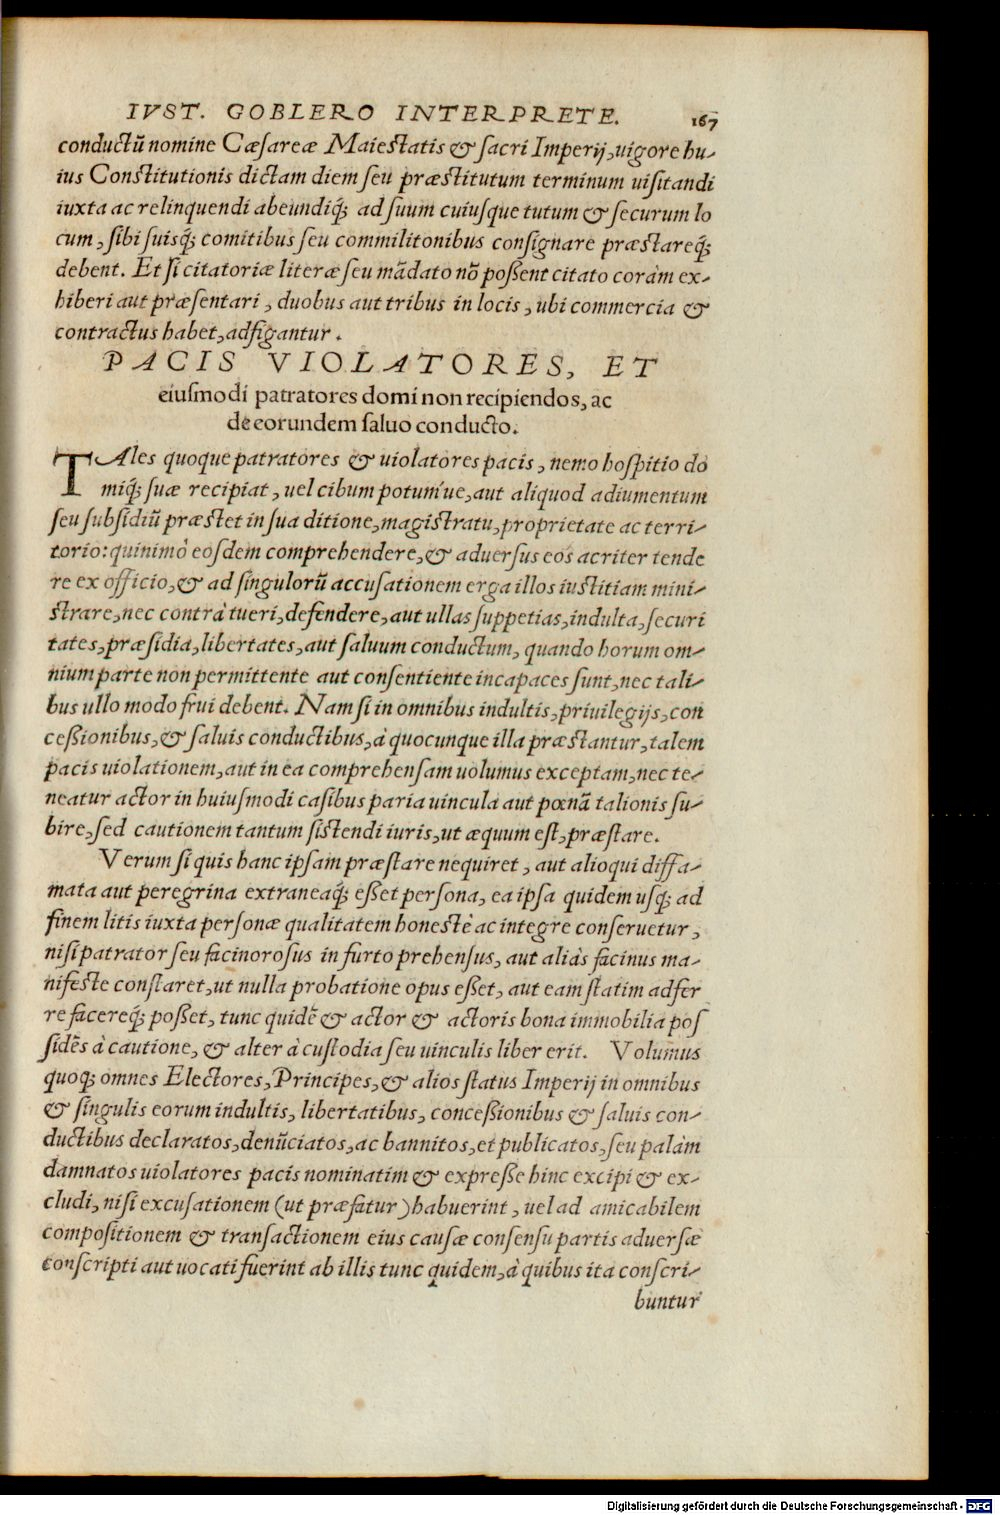 IVST. GOBLERO INTERPRETE. 167
conductū nomine Cæsareæ Maiestatis & sacri Imperij, uigore hu-
ius Constitutionis dictam diem seu præstitutum terminum uisitandi
iuxta ac relinquendi abeundiq́; ad suum cuiusque tutum & securum lo
cum, sibi suisq́; comitibus seu commilitonibus consignare præstareq́;
debent. Et si citatoriæ literæ seu mādato nō possent citato coràm ex-
hiberi aut præsentari, duobus aut tribus in locis, ubi commercia &
contractus habet, adfigantur.
PACIS VIOLATORES, ET
eiusmodi patratores domi non recipiendos, ac
de eorundem saluo conducto.
TAles quoque patratores & uiolatores pacis, nemo hospitio do
miq́; suæ recipiat, uel cibum potum'ue, aut aliquod adiumentum
seu subsidiū præstet in sua ditione, magistratu, proprietate ac terri-
torio: quinimò eosdem comprehendere, & aduersus eos acriter tende
re ex officio, & ad singulorū accusationem erga illos iustitiam mini-
strare, nec contrà tueri, defendere, aut ullas suppetias, indulta, securi
tates, præsidia, libertates, aut saluum conductum, quando horum om-
nium parte non permittente aut consentiente incapaces sunt, nec tali-
bus ullo modo frui debent. Nam si in omnibus indultis, priuilegijs, con
cessionibus, & saluis conductibus, à quocunque illa præstantur, talem
pacis uiolationem, aut in ea comprehensam uolumus exceptam, nec te-
neatur actor in huiusmodi casibus paria uincula aut pœnā talionis su-
bire, sed cautionem tantum sistendi iuris, ut æquum est, præstare.
Verum si quis hanc ipsam præstare nequiret, aut alioqui diffa-
mata aut peregrina extraneaq́; esset persona, ea ipsa quidem usq; ad
finem litis iuxta personæ qualitatem honestè ac integre conseruetur,
nisi patrator seu facinorosus in furto prehensus, aut aliàs facinus ma-
nifeste constaret, ut nulla probatione opus esset, aut eam statim adfer
re facereq́; posset, tunc quidē & actor & actoris bona immobilia pos
sidēs à cautione, & alter à custodia seu uinculis liber erit. Volumus
quoq; omnes Electores, Principes, & alios status Imperij in omnibus
& singulis eorum indultis, libertatibus, concessionibus & saluis con-
ductibus declaratos, denūciatos, ac bannitos, et publicatos, seu palàm
damnatos uiolatores pacis nominatim & expresse hinc excipi & ex-
cludi, nisi excusationem (ut præfatur) habuerint, uel ad amicabilem
compositionem & transactionem eius causæ consensu partis aduersæ
conscripti aut uocati fuerint ab illis tunc quidem, à quibus ita conscri-
buntur
Digitalisierung gefördert durch die Deutsche Forschungsgemeinschaft - DFG